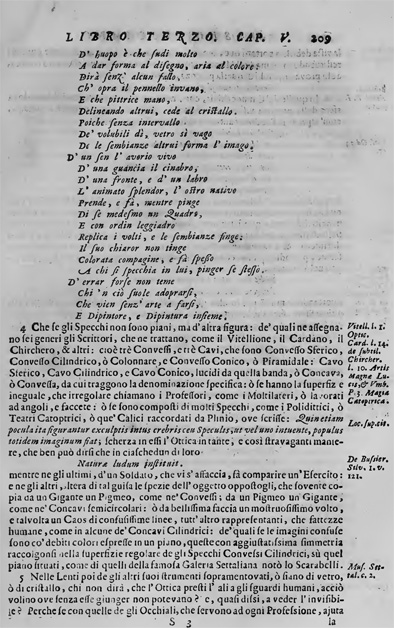 LIBRO TERZO. CAP. V. 209
D' huopo è che sudi molto
A dar forma al disegno, aria al colore:
Dirà senz' alcun fallo,
Ch' opra il pennello invano,
E che pittrice mano,
Delineando altrui, cede al cristallo.
Poiche senza intervallo
De' volubili dì, vetro sì vago
De le sembianze altrui forma l' imago;
D' un sen l' avorio vivo
D' una guancia il cinabro;
D' una fronte, e d' un labro
L' animato splendor, l' ostro nativo
Prende, e fà, mentre pinge
Di se medesmo un Quadro,
E con ordin leggiadro
Replica i volti, e le sembianze finge:
Il suo chiaror non tinge
Colorata compagine, e fà spesso
A chi si specchia in lui, pinger se stesso.
D' errar forse non teme
Chi 'n ciò suole adoprarsi,
Che vien senz' arte a farsi,
E Dipintore, e Dipintura insieme.
4 Che se gli Specchi non sono piani, ma d'altra figura: de' quali ne assegna-
no sei generi gli Scrittori, che ne trattano, come il Vitellione, il Cardano, il
Chirchero, & altri: cioè trè Convessi, e trè Cavi, che sono Convesso Sferico,
Convesso Cilindrico, ò Colonnare, e Convesso Conico, ò Piramidale: Cavo
Sferico, Cavo Cilindrico, e Cavo Conico, lucidi da quella banda, ò Concava,
ò Convessa, da cui traggono la denominazione specifica: ò se hanno la superfiz e
ineguale, che irregolare chiamano i Professori, come i Moltilateri, ò lavorati
ad angoli, e faccete: ò se sono composti di molti Specchi, come i Polidittici, ò
Teatri Catoptrici, ò que' Calici raccordati da Plinio, ove scrisse: Quinetiam
pocula ita figurantur exculptis intus crebris ceu Speculis, ut vel uno intuente, populus
totidem imaginum fiat; scherza in essi l'Ottica in tante, e così stravaganti manie-
re, che ben può dirsi che in ciascheduno di loro
Naturæ ludum instituit.
mentre ne gli ultimi, d'un Soldato, che vi s'affaccia, fà comparire un'Esercito:
e ne gli altri, altera di tal guisa le spezie dell'oggetto oppostogli, che sovente co-
pia da un Gigante un Pigmeo, come ne' Convessi: da un Pigmeo un Gigante,
come ne' Concavi semicircolari: ò da bellissima faccia un mostruosissimo volto,
e talvolta un Caos di confusissime linee, tutt'altro rappresentanti, che fattezze
humane, come in alcune de' Concavi Cilindrici: de' quali se le imagini confuse
sono co' debiti colori espresse in un piano, queste con aggiustatissima simmetria
raccolgonsi nella superfizie regolare de gli Specchi Convessi Cilindrici, sù quel
piano situati, come di quelli della famosa Galeria Settaliana notò lo Scarabelli.
5 Nelle Lenti poi de gli altri suoi strumenti sopramentovati, ò siano di vetro,
ò di cristallo, chi non dirà, che l'Ottica presti l' ali a gli sguardi humani, acciò
volino ove senza esse giunger non potevano? e, quasi dissi, a veder l' invisibi-
le? Perche se con quelle de gli Occhiali, che servono ad ogni Professione, ajuta
S 3 la
Vitell. l. 1.
Optic.
Card. l. 14.
de subtil.
Chircher.
l. 10. Artis
Magnæ Lu-
cis, & Umb.
P. 3. Magia
Catoptrica.
Loc. sup. cit.
De Bussier.
Stiv. l. v.
121.
Mus. Set-
tal. c. 2.